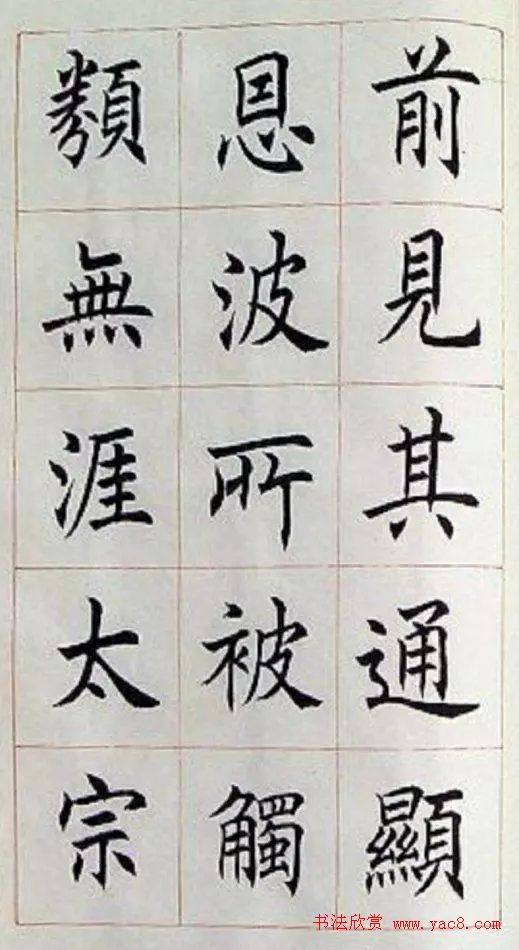 前見其通顯
恩波所被觸
類無涯太宗
书法欣赏 www.yac8.com